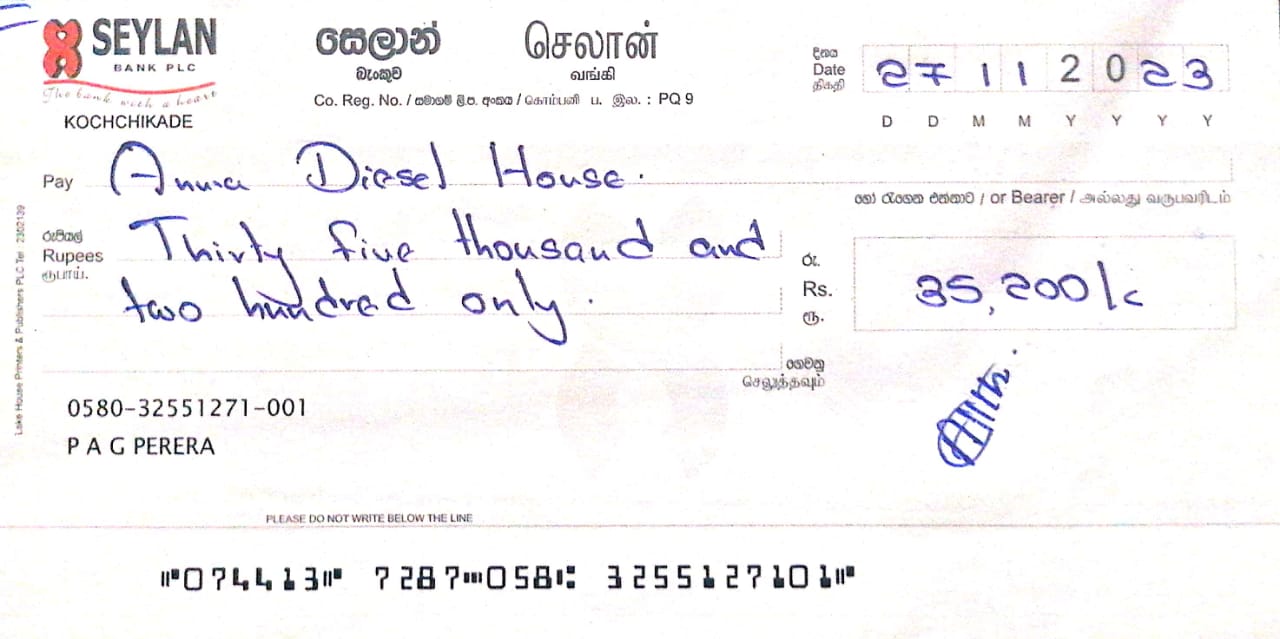 SEYLAN
BANK PLC
The bank with a heart
KOCHCHIKADE
සෙලාන්
බැංකුව
செலான்
வங்கி
Co. Reg. No. / සමාගම් ලි.ප. අංකය / கொம்பனி ப. இல. : PQ 9
දිනය
Date
திகதி
27 11 2023
D D M M Y Y Y Y
Pay Anura Diesel House.
හෝ රැගෙන එන්නාට / or Bearer / அல்லது வருபவரிடம்
රුපියල්
Rupees
ரூபாய்.
Thirty five thousand and
two hundred only.
රු.
Rs.
ரூ.
35,200/c
ගෙවනු
செலுத்தவும்
0580-32551271-001
P A G PERERA
Lake House Printers & Publishers PLC Tel 2302139
PLEASE DO NOT WRITE BELOW THE LINE
⑈074413⑈ 7287⑉058⑆ 3255127101⑈